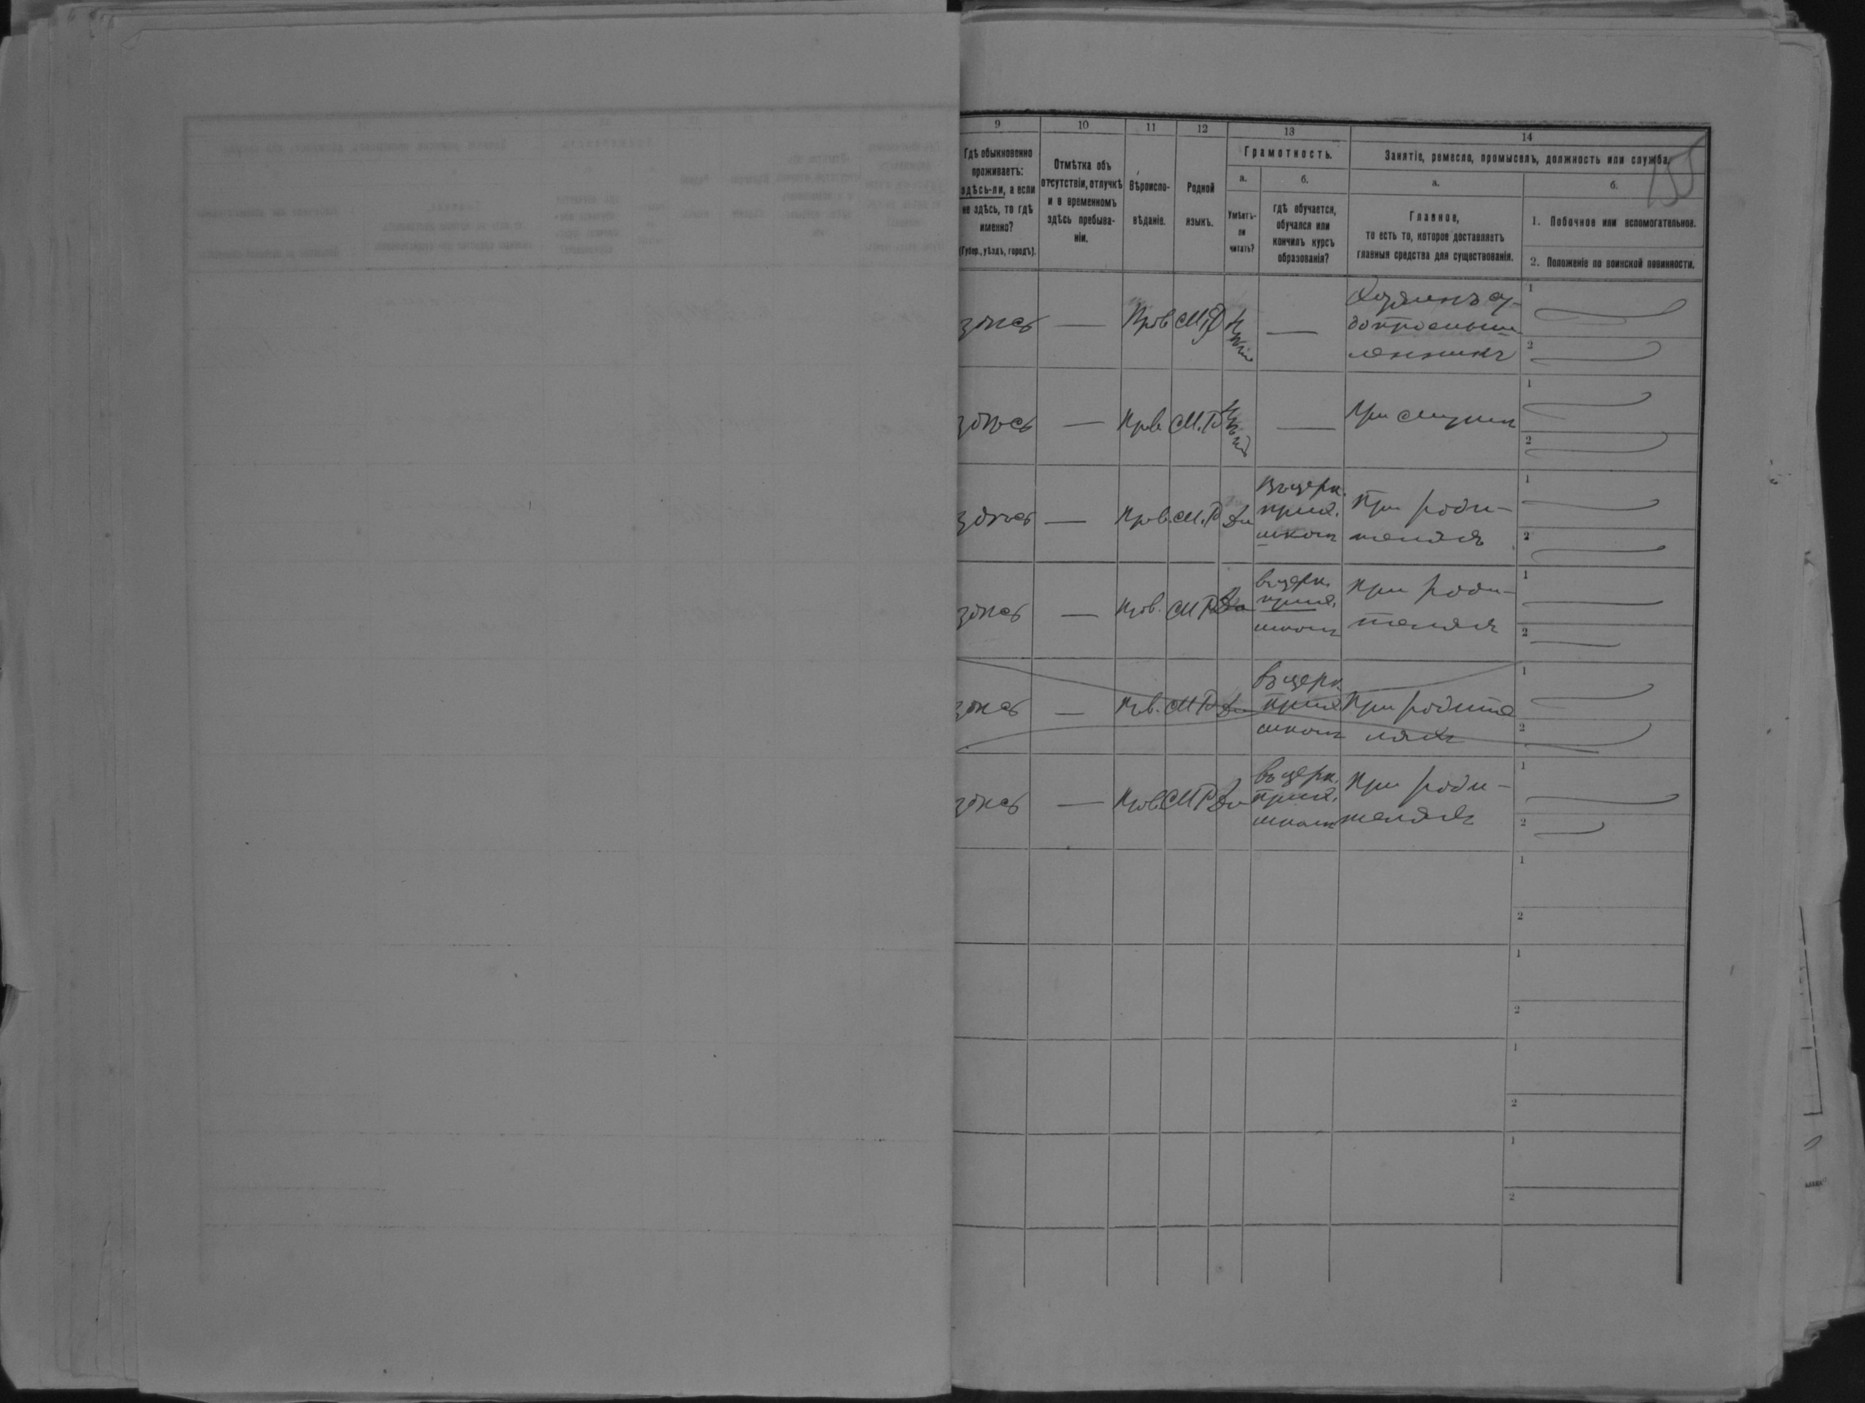 155
9
10
11
12
13
14
Гдѣ обыкновенно
проживаетъ:
здѣсь-ли, а если
не здѣсь, то гдѣ
именно?
(Губер., уѣздъ, городъ).
Отмѣтка объ
отсутствіи, отлучкѣ
и о временномъ
здѣсь пребыва-
ніи.
Вѣроиспо-
вѣданіе.
Родной
языкъ.
Грамотность.
а.
Умѣетъ-
ли
читать?
б.
гдѣ обучается,
обучался или
кончилъ курсъ
образованія?
Занятіе, ремесло, промыселъ, должность или служба.
а.
Главное,
то есть то, которое доставляетъ
главныя средства для существованія.
б.
1. Побочное или вспомогательное.
2. Положеніе по воинской повинности.
здѣсь — Прв —
Хозяинъ су-
допромыш
ленникъ
1
2
здѣсь — Прв. —
При
1
2
здѣсь — Прв. Да
Въ церк.
прих.
школѣ
При роди-
теляхъ
1
2
здѣсь — Прв. Да
въ церк.
прих.
школѣ
При роди-
теляхъ
1
2
здѣсь — Прв. Да
въ церк.
прих
школѣ
При родите
ляхъ
1
2
здѣсь — Прв. Да
въ церк.
прих.
школѣ
При роди-
теляхъ
1
2
1
2
1
2
1
2
1
2